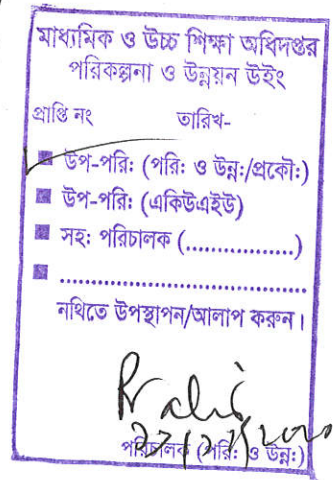 মাধ্যমিক ও উচ্চ শিক্ষা অধিদপ্তর
পরিকল্পনা ও উন্নয়ন উইং
প্রাপ্তি নং তারিখ-
উপ-পরি: (পরি: ও উন্ন:/প্রকৌ:)
উপ-পরি: (একিউএইউ)
সহ: পরিচালক (...............)
....................................
নথিতে উপস্থাপন/আলাপ করুন।
পরিচালক (পরি: ও উন্ন:)